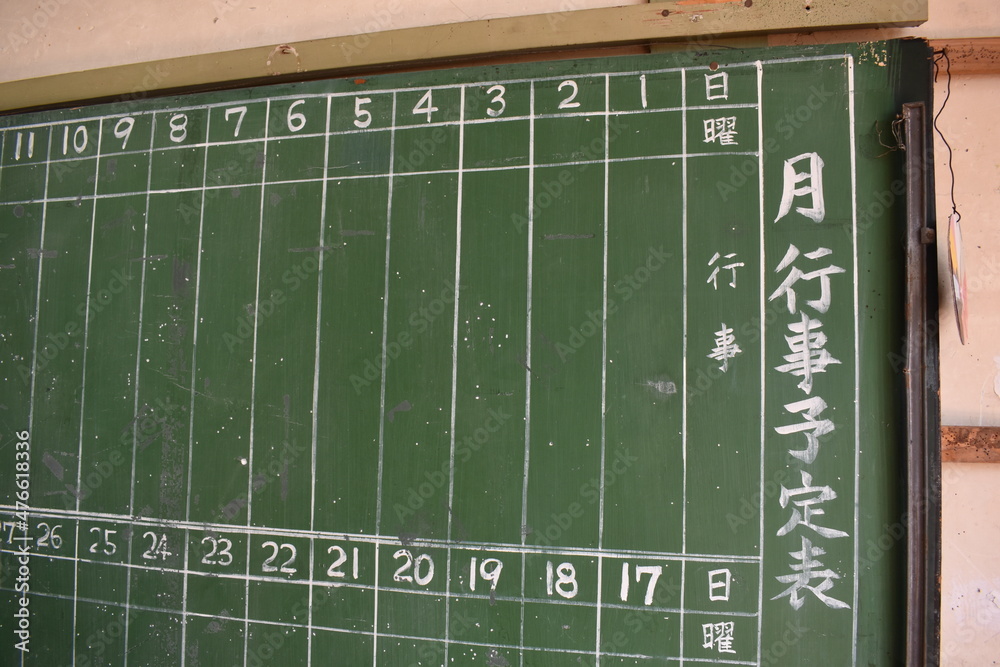 月行事予定表
日 1 2 3 4 5 6 7 8 9 10 11
曜
行事
日 17 18 19 20 21 22 23 24 25 26 27
曜
Adobe Stock | #476618336